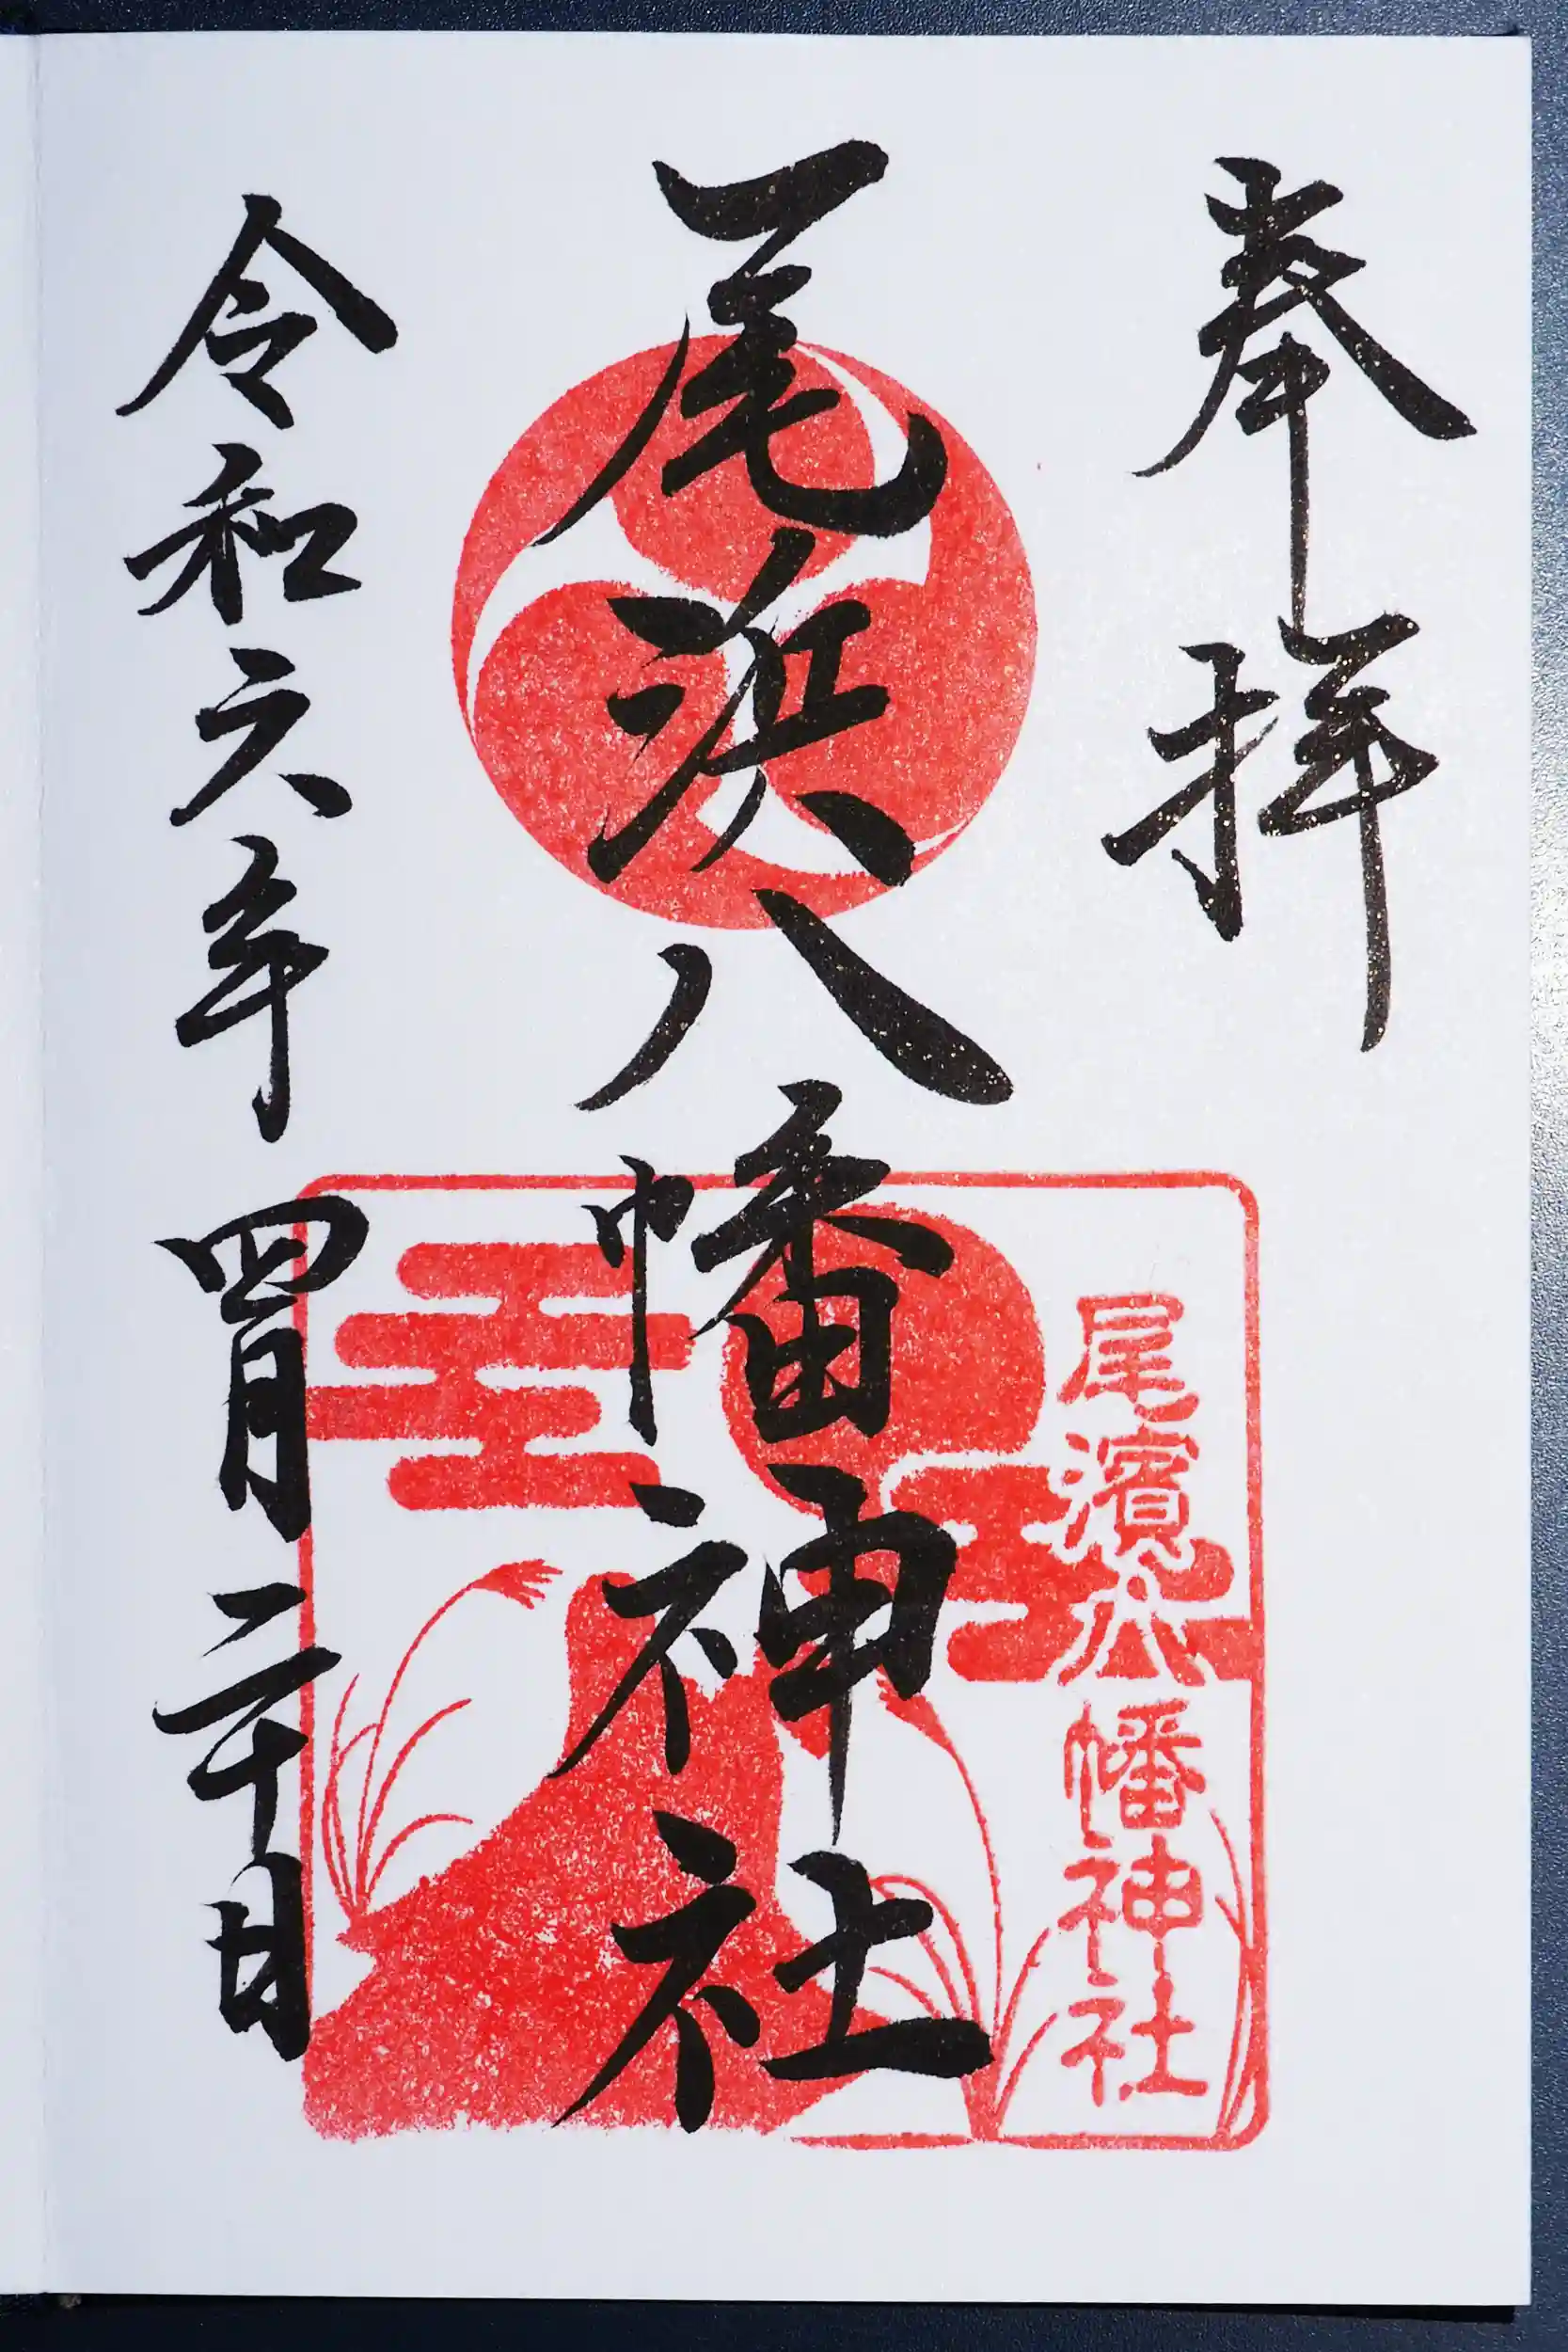 奉拝
尾濱八幡神社
尾浜八幡神社
令和六年四月二十日